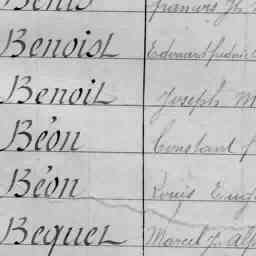 Denis
Benoist Edouard
Benoit Joseph M
Béon Constant
Béon Louis Eug
Bequet Marcel J. Alp